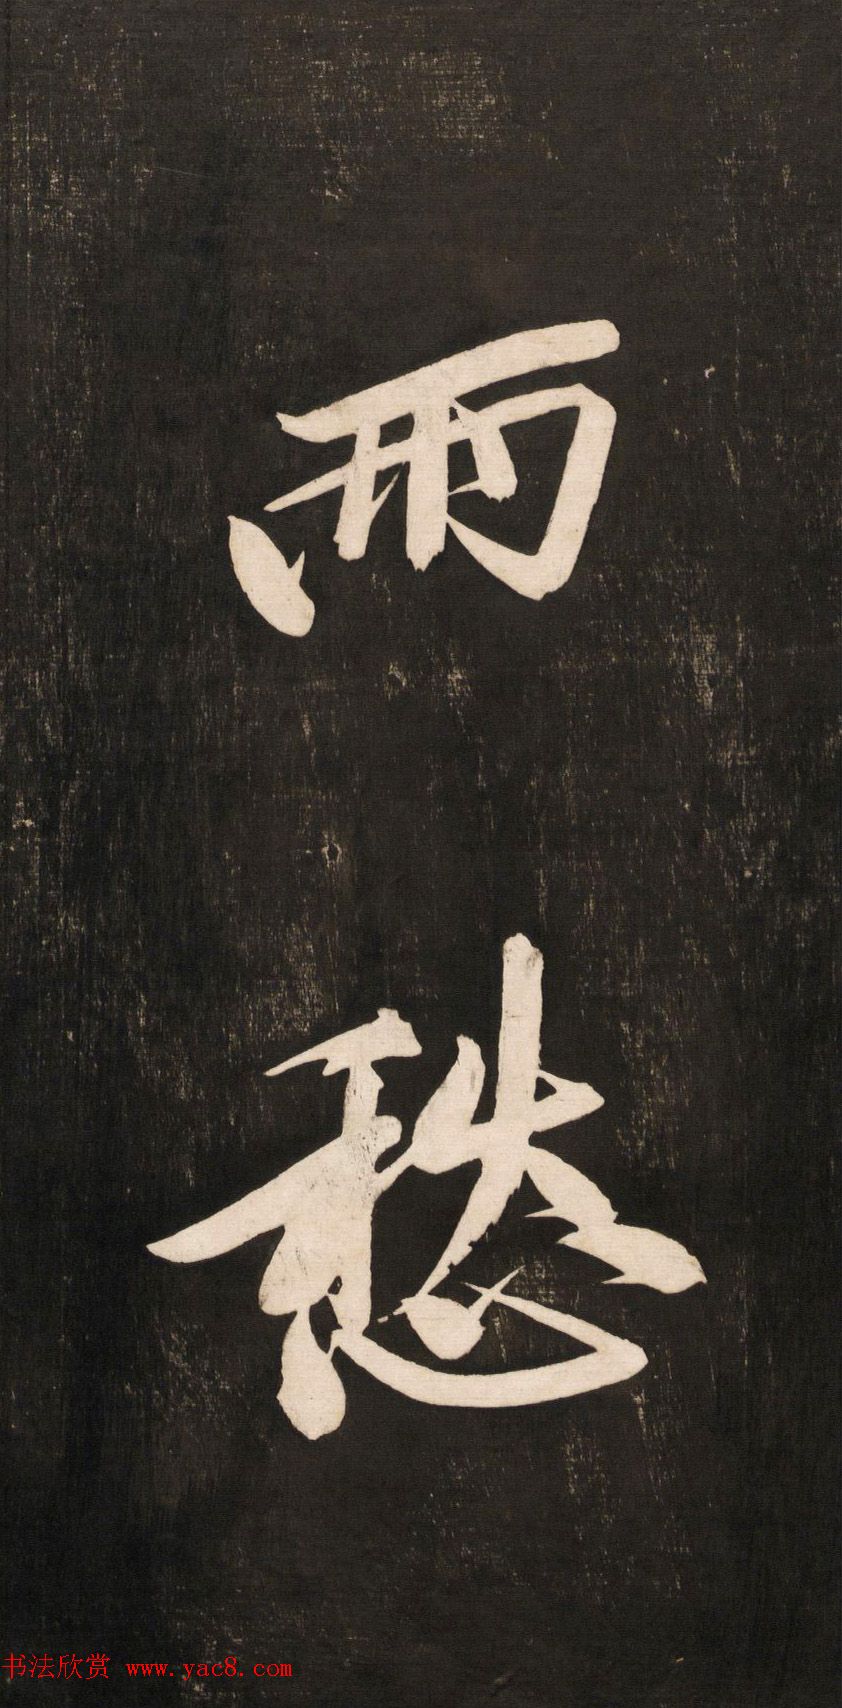 雨
愁
书法欣赏 www.yac8.com